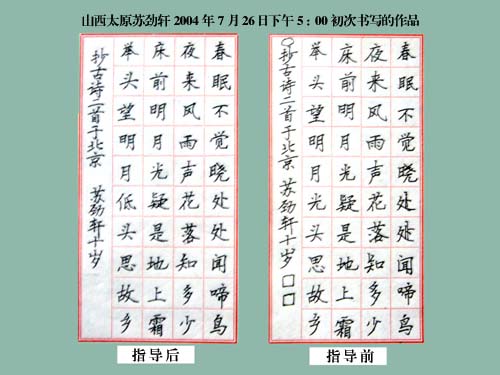 山西太原苏劲轩2004年7月26日下午5：00初次书写的作品
春眠不觉晓处处闻啼鸟
夜来风雨声花落知多少
床前明月光疑是地上霜
举头望明月低头思故乡
抄古诗二首于北京 苏劲轩十岁
指导后
春眠不觉晓处处闻啼鸟
夜来风雨声花落知多少
床前明月光疑是地上霜
举头望明月光头思故乡
○抄古诗二首于北京 苏劲轩十岁□□
指导前